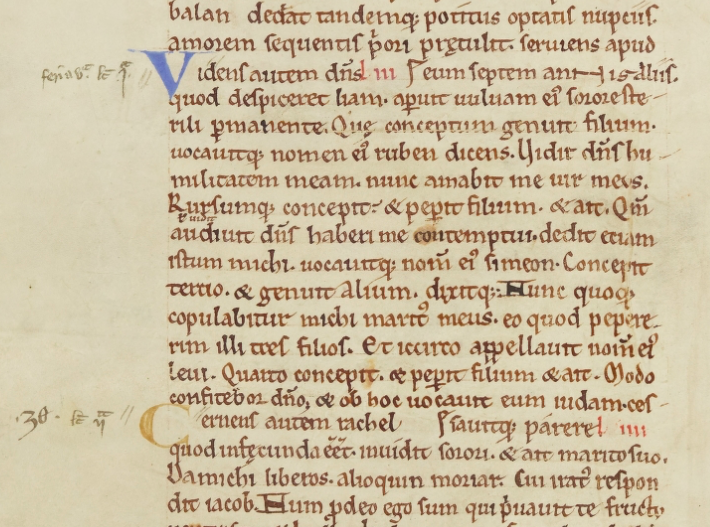 balan dedat tandemq; potitus optatis nuptiis.
amorem sequentis p̄ori prętulit. seruiens apud
Videns autem dn̄s l iii eum septem ann is aliis.
quod despiceret liam. aperuit uuluam ei᷒ sorore ste-
rili permanente. Quę conceptum genuit filium.
uocauitq; nomen ei᷒ ruben dicens. Uidit dn̄s hu-
militatem meam. nunc amabit me uir meus.
Rursumq; concepit. & peperit filium. & ait. Qm̄
audiuit dn̄s haberi me contemptui. dedit etiam
istum michi. uocauitq; nom̄ ei᷒ simeon. Concepit
tercio. & genuit alium. dixitq;. Nunc quoq;
copulabitur michi marit᷒ meus. eo quod pepere-
rim illi tres filios. Et iccirco appellauit nom̄ ei᷒
leui. Quarto concepit. & peperit filium & ait. Modo
confitebor dn̄o, & ob hoc uocauit eum iudam. ces-
Cernens autem rachel sauitq; parere l iiii
quod infęcunda eēt. inuidit sorori. & ait marito suo.
Da michi liberos. alioquin moriar. Cui irat᷒ respon
dit iacob. Num p̄ deo ego sum qui p̄uauit te fructu